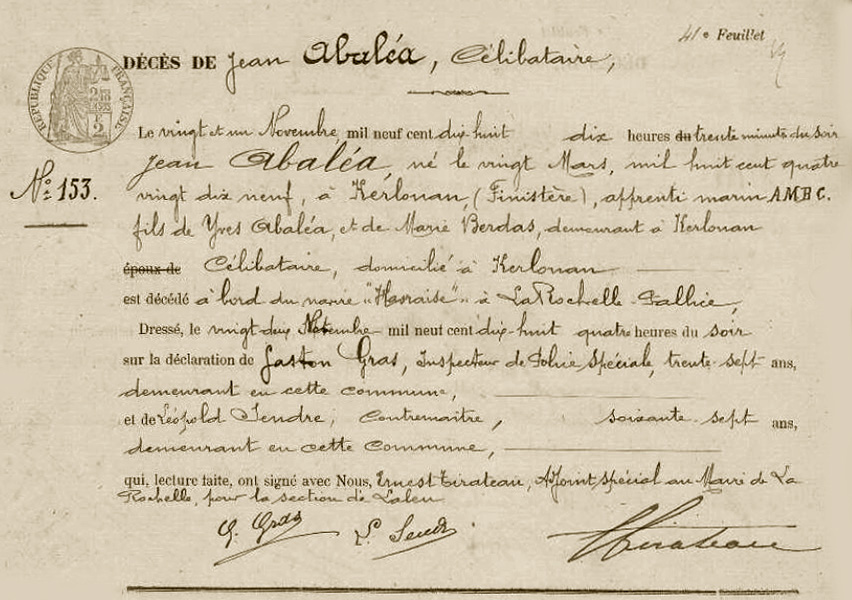 41e Feuillet
DÉCÈS DE Jean Abaléa, Célibataire,
RÉPUBLIQUE FRANÇAISE
Le vingt et un Novembre mil neuf cent dix-huit dix heures du trente minutes du soir
Jean Abaléa, né le vingt Mars, mil huit cent quatre
No 153.
vingt dix neuf, à Kerlouan (Finistère), apprenti marin AMBC.
fils de Yves Abaléa, et de Marie Berdas, demeurant à Kerlouan
époux de Célibataire, domicilié à Kerlouan
est décédé à bord du navire "Havraise" à La Rochelle-Pallice,
Dressé, le vingt-deux Novembre mil neuf cent dix-huit quatre heures du soir
sur la déclaration de Gaston Gras, Inspecteur de Police Spéciale, trente-sept ans,
demeurant en cette commune,
et de Léopold Sendre, Contremaître, soixante-sept ans,
demeurant en cette Commune,
qui, lecture faite, ont signé avec Nous, Ernest Tirateau, Adjoint spécial au Maire de La
Rochelle, pour la section de Laleu
G. Gras L. Sendre Tirateau